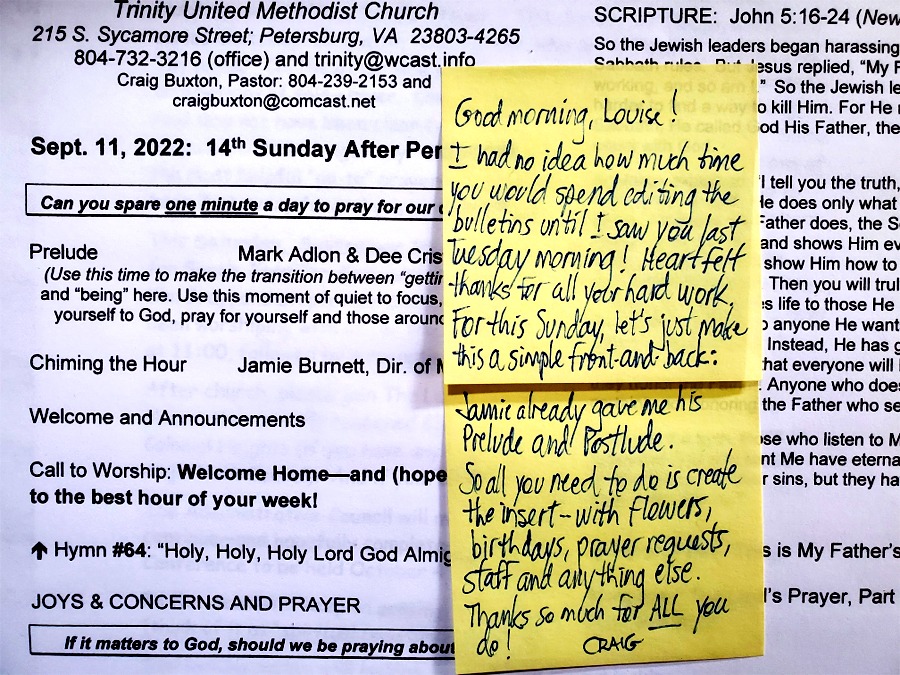 Trinity United Methodist Church
215 S. Sycamore Street; Petersburg, VA 23803-4265
804-732-3216 (office) and trinity@wcast.info
Craig Buxton, Pastor: 804-239-2153 and
craigbuxton@comcast.net
Sept. 11, 2022: 14th Sunday After Per
Can you spare one minute a day to pray for our
Prelude Mark Adlon & Dee Cris
(Use this time to make the transition between “gettin
and “being” here. Use this moment of quiet to focus,
yourself to God, pray for yourself and those around
Chiming the Hour Jamie Burnett, Dir. of M
Welcome and Announcements
Call to Worship: Welcome Home—and (hope
to the best hour of your week!
↑ Hymn #64: “Holy, Holy, Holy Lord God Almig
JOYS & CONCERNS AND PRAYER
If it matters to God, should we be praying about
Good morning, Louise!
I had no idea how much time
you would spend editing the
bulletins until I saw you last
Tuesday morning! Heartfelt
thanks for all your hard work.
For this Sunday, let's just make
this a simple front-and-back:
Jamie already gave me his
Prelude and Postlude.
So all you need to do is create
the insert-with Flowers,
birthdays, prayer requests,
staff and anything else.
Thanks so much for ALL you
do! CRAIG
SCRIPTURE: John 5:16-24 (New
So the Jewish leaders began harassing
Sabbath rules. But Jesus replied, “My F
working, and so am I.” So the Jewish le
to find a way to kill Him. For He
He called God His Father, the
I tell you the truth,
He does only what
Father does, the S
and shows Him ev
show Him how to
Then you will trul
s life to those He
o anyone He want
Instead, He has g
that everyone will
Anyone who does
honoring the Father who se
ose who listen to M
nt Me have eterna
r sins, but they ha
s is My Father's
d's Prayer, Part